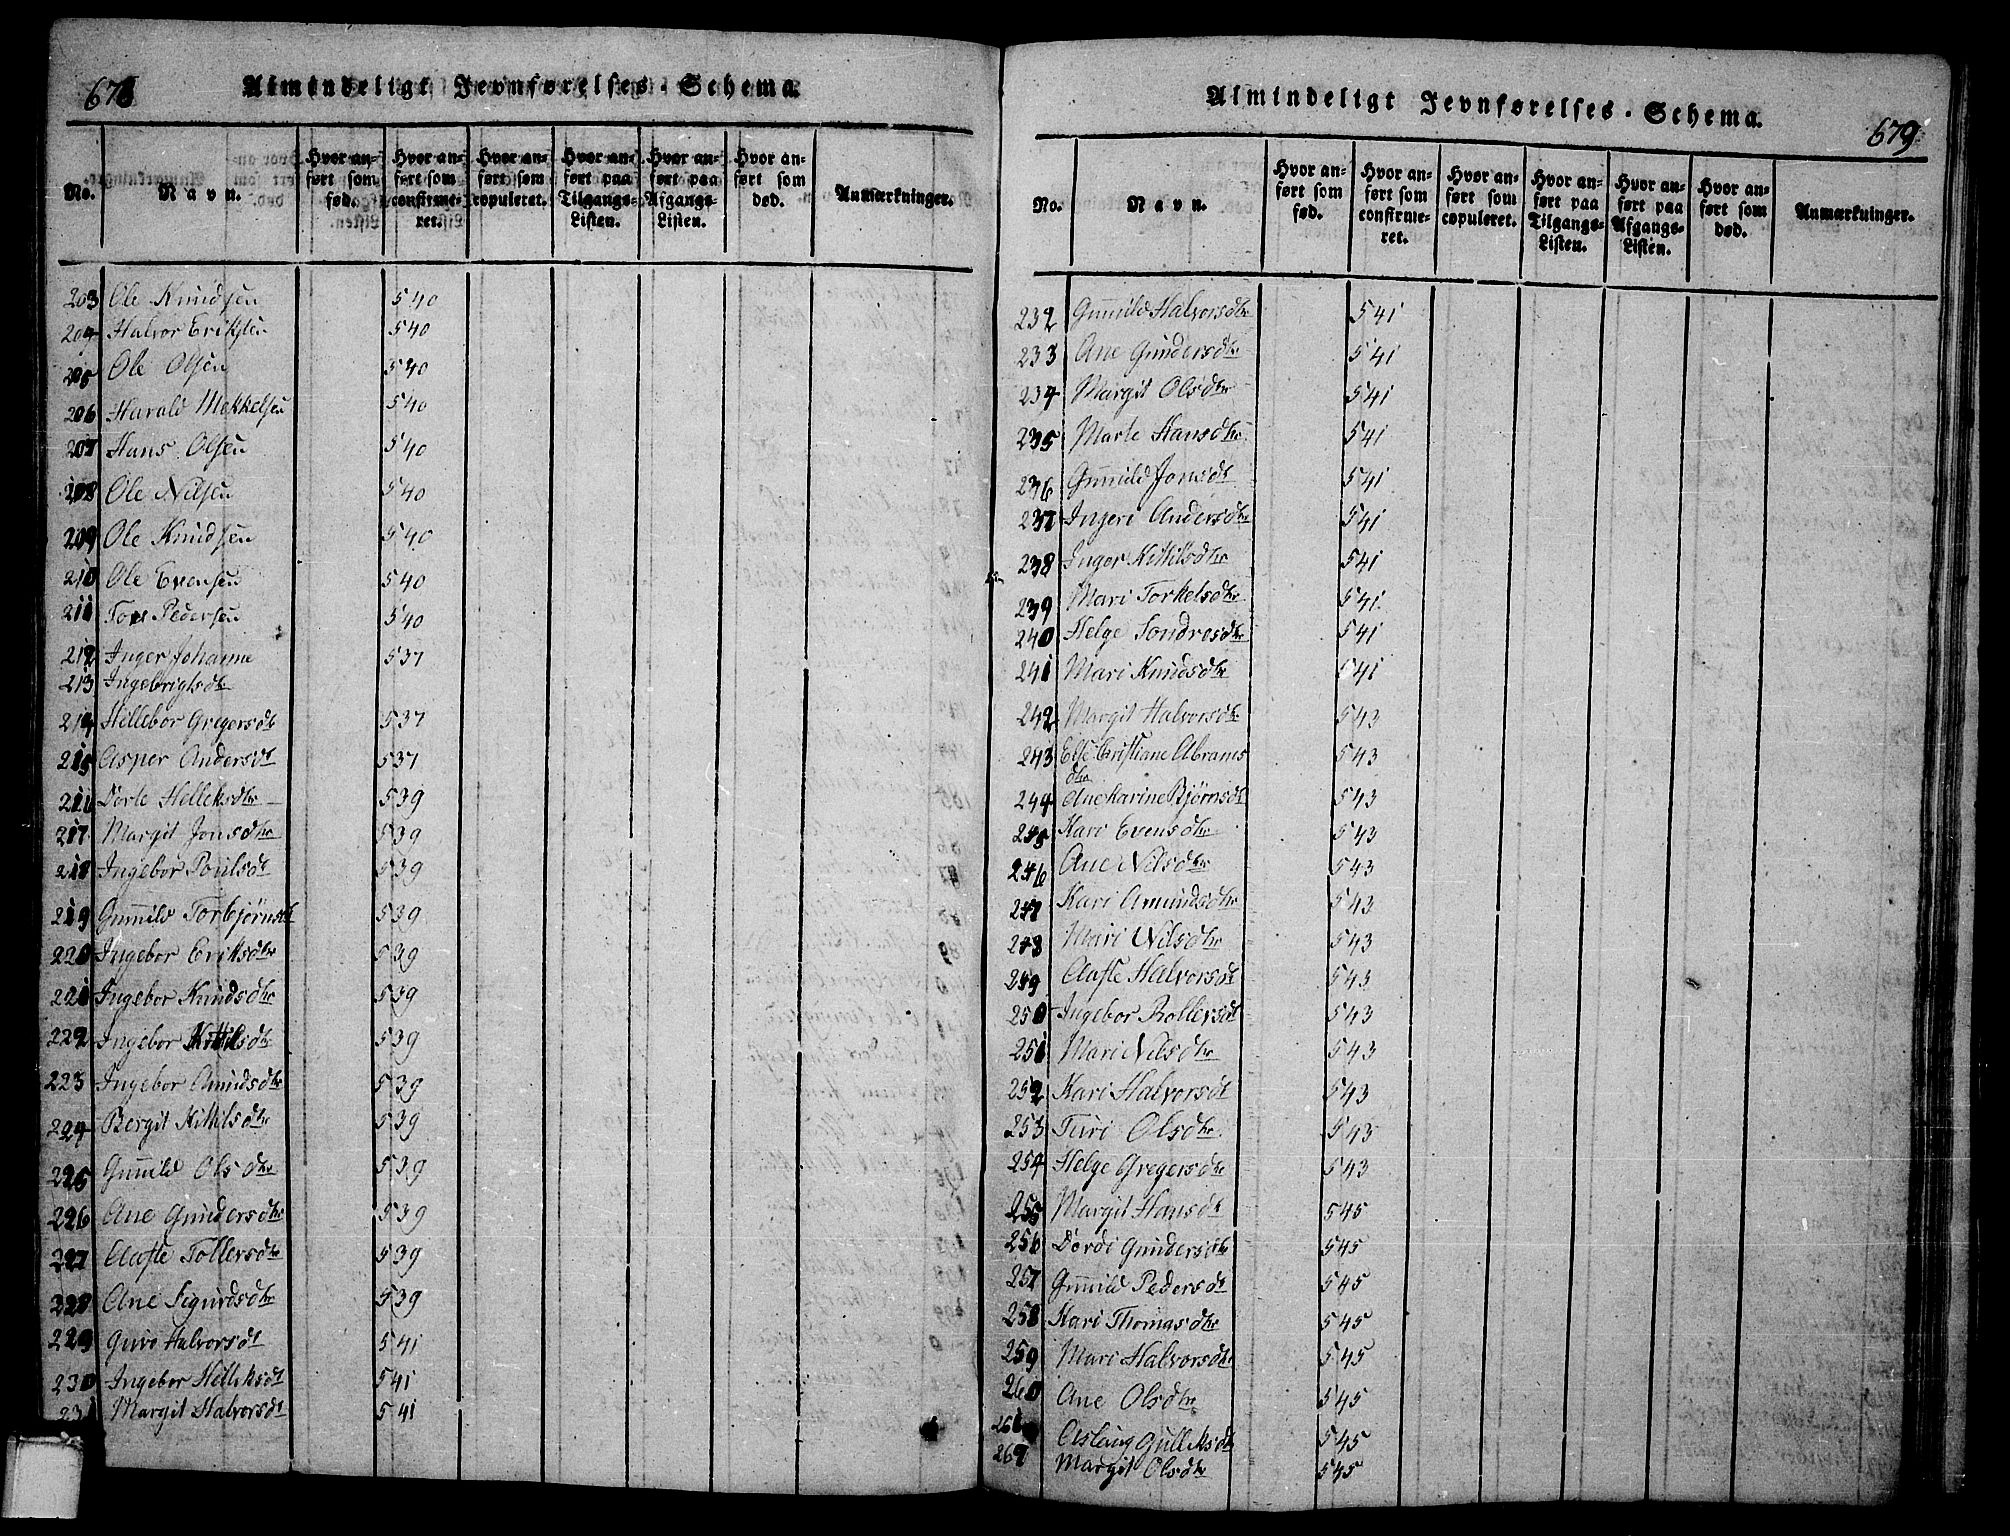 678
Almindeligt Jevnførelses-Schema.
No.
Navn.
Hvor anført som fød.
Hvor anført som confirmeret.
Hvor anført som copuleret.
Hvor anført paa Tilgangs-Listen.
Hvor anført paa Afgangs-Listen.
Hvor anført som død.
Anmærkninger.
203 Ole Knudsen 540
204 Halvor Eriksen 540
205 Ole Olsen 540
206 Harald Mekkelsen 540
207 Hans Olsen 540
208 Ole Nilsen 540
209 Ole Knudsen 540
210 Ole Evensen 540
211 Tor Pedersen 540
212 Inger Johanne 537
213 Ingebrigtsdtr
214 Hellebor Gregersdt 537
215 Asper Andersdt 537
216 Dorte Helleksdtr 539
217 Margit Jonsdtr 539
218 Ingebor Poulsdt 539
219 Gunnild Torbjørnsdt 539
220 Ingebor Eriksdtr 539
221 Ingebor Knudsdtr 539
222 Ingebor Kittilsdtr 539
223 Ingebor Amundsdtr 539
224 Bergit Kittilsdtr 539
225 Gunnild Olsdtr 539
226 Ane Gundersdtr 539
227 Aaste Tollersdtr 539
228 Ane Sigurdsdtr 539
229 Guro Halvorsdt 541
230 Ingebor Helleksdt 541
231 Margit Halvorsdt 541
Almindeligt Jevnførelses-Schema.
679
No.
Navn.
Hvor anført som fød.
Hvor anført som confirmeret.
Hvor anført som copuleret.
Hvor anført paa Tilgangs-Listen.
Hvor anført paa Afgangs-Listen.
Hvor anført som død.
Anmærkninger.
232 Gunnild Halvorsdtr 541
233 Ane Gundersdtr 541
234 Margit Olsdtr 541
235 Marte Hansdtr 541
236 Gunnild Jonsdt 541
237 Injeri Andersdtr 541
238 Inger Kittilsdtr 541
239 Mari Torkelsdtr 541
240 Helge Sondresdtr 541
241 Mari Knudsdtr 541
242 Margit Halvorsdtr 543
243 Else Christiane Abrams 543
dtr
244 Ane Karine Bjørnsdt 543
245 Kari Evensdtr 543
246 Ane Nilsdtr 543
247 Kari Amundsdtr 543
248 Mari Nilsdtr 543
249 Aaste Halvorsdt 543
250 Ingebor Rollevsdt 543
251 Mari Nilsdtr 543
252 Kari Halvorsdt 543
253 Turi Olsdtr 543
254 Helge Gregersdtr 543
255 Margit Hansdt 545
256 Dordi Gundersdtr 545
257 Gunnild Pedersdt 545
258 Kari Thomasdtr 545
259 Mari Halvorsdtr 545
260 Ane Olsdtr 545
261 Aslaug Gulleksdt 545
262 Margit Olsdtr 545